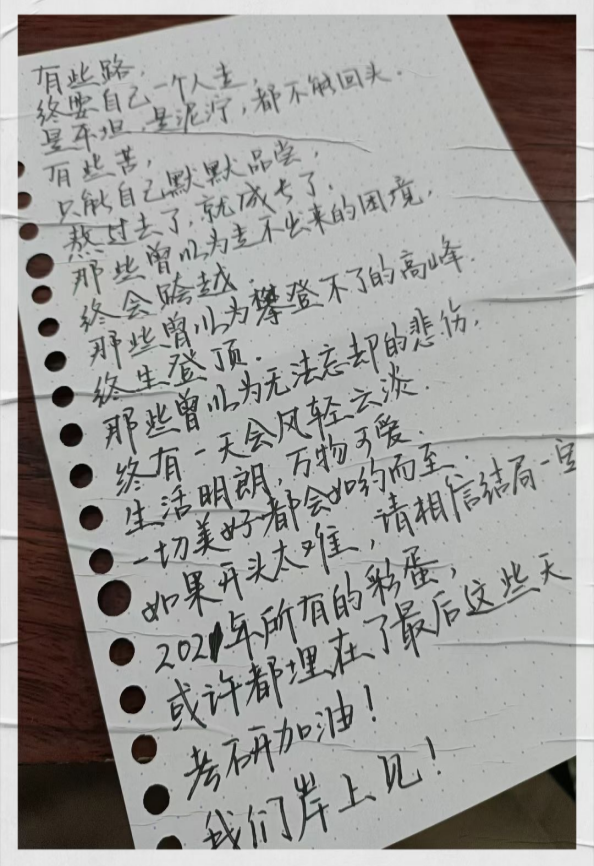 有些路，
终要自己一个人走，
是平坦，是泥泞，都不能回头．
有些苦，
只能自己默默品尝，
熬过去了，就成长了．
那些曾以为走不出来的困境，
终会跨越．
那些曾以为攀登不了的高峰．
终生登顶．
那些曾以为无法忘却的悲伤，
终有一天会风轻云淡．
生活明朗，万物可爱．
一切美好都会如约而至．
如果开头太难，请相信结局一定
2021年所有的彩蛋，
或许都埋在了最后这些天
考研加油！
我们岸上见！